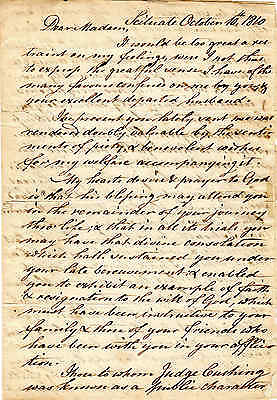 Scituate October 16th, 1810
Dear Madam,
It would be too great a res
traint on my feelings, were I not thus
to express the greatful sense I have of the
many favours confered on me by you &
your excellent departed husband.
The present you lately sent me was
rendered doubly valuable by the senti
ments of piety, & benevolent wishes
for my welfare accompanying it.
My hearts desire & prayer to God
is that his blessing may attend you
in the remainder of your journey
thro' life & that in all its trials you
may have that divine consolation
which hath sustained you under
your late bereavement & enabled
you to exhibit an example of faith
& resignation to the will of God, which
must have been instructive to your
family & them of your friends who
have been with you in your afflic
tion.
Those to whom Judge Cushing
was known as a public character,